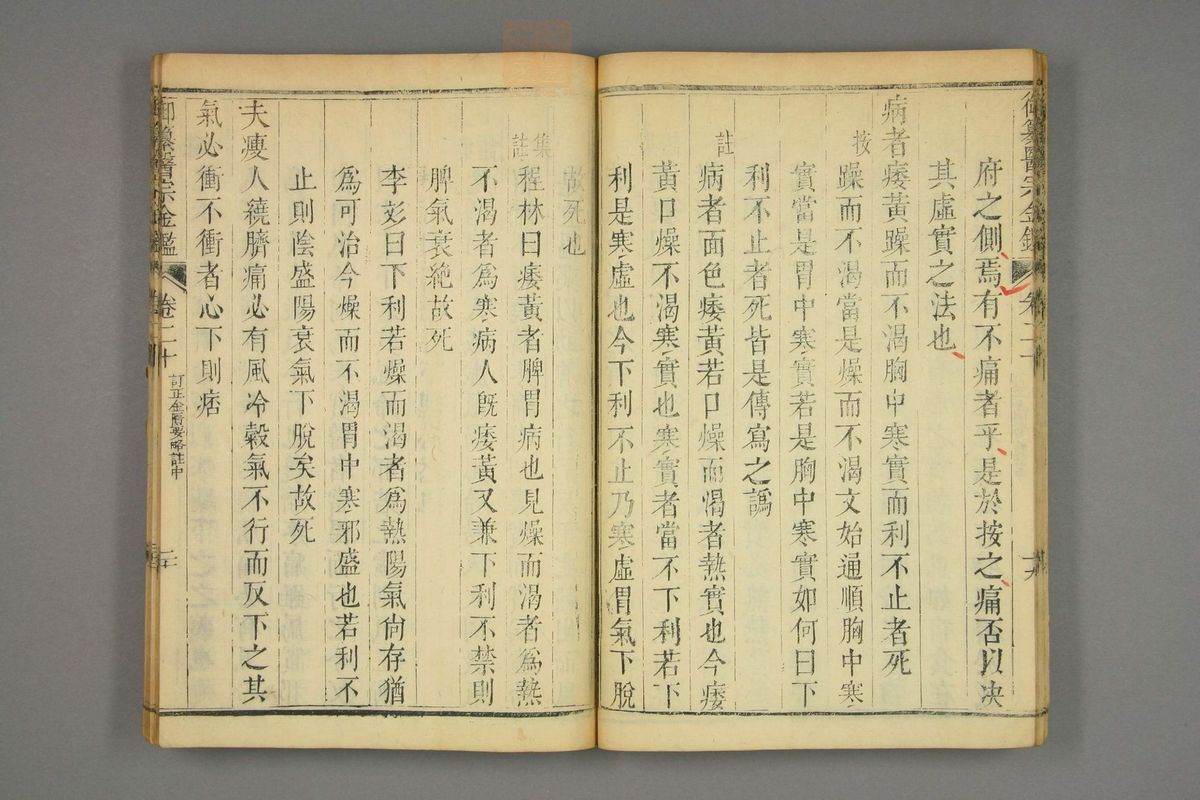 御纂醫宗金鑑 卷二十 十九
府之側焉有不痛者乎是於按之痛否以决
其虛實之法也
病者痿黃躁而不渴胸中寒實而利不止者死
按
躁而不渴當是燥而不渴文始通順胸中寒
實當是胃中寒實若是胸中寒實如何曰下
利不止者死皆是傳寫之譌
註
病者面色痿黃若口燥而渴者熱實也今痿
黃口燥不渴寒實也寒實者當不下利若下
利是寒虛也今下利不止乃寒虛胃氣下脫
故死也
集註
程林曰痿黃者脾胃病也見燥而渴者爲熱
不渴者爲寒病人旣痿黃又兼下利不禁則
脾氣衰絶故死
李彣曰下利若燥而渴者爲熱陽氣尙存猶
爲可治今燥而不渴胃中寒邪盛也若利不
止則陰盛陽衰氣下脫矣故死
夫瘦人繞臍痛必有風冷穀氣不行而反下之其
氣必衝不衝者心下則痞
御纂醫宗金鑑 卷二十 訂正金匱要略註中